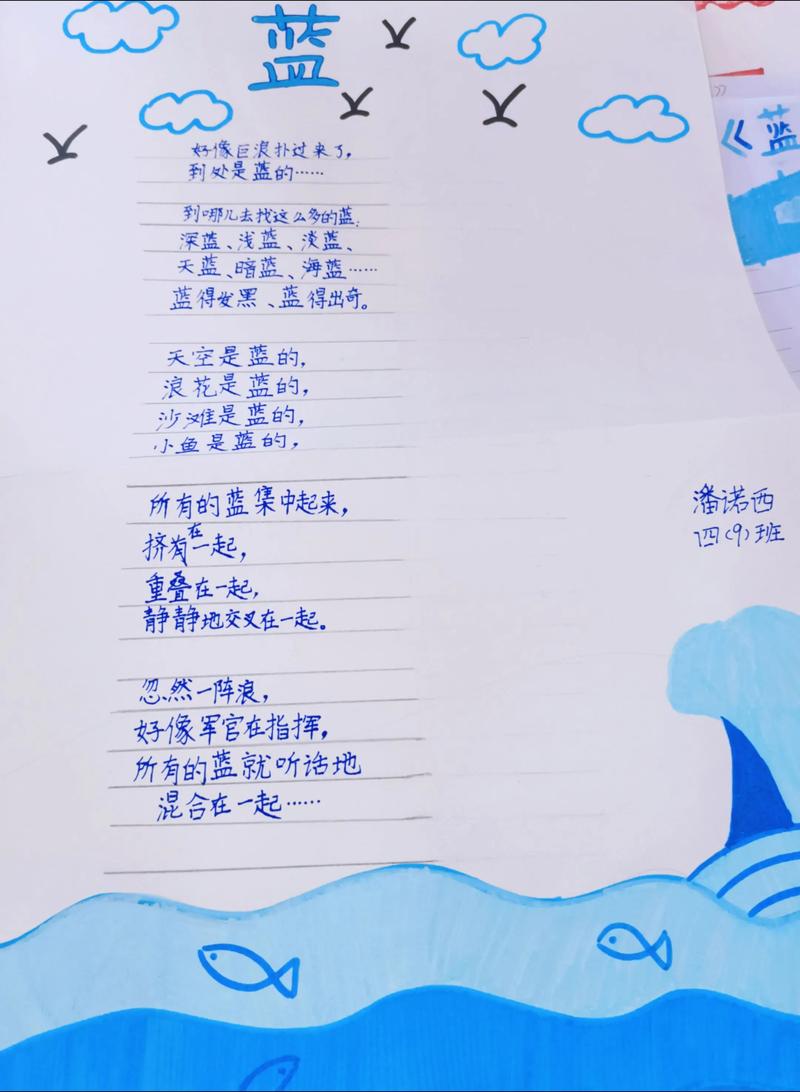 蓝
好像巨浪扑过来了，
到处是蓝的……
到哪儿去找这么多的蓝：
深蓝、浅蓝、淡蓝、
天蓝、暗蓝、海蓝……
蓝得发黑、蓝得出奇。
天空是蓝的，
浪花是蓝的，
沙滩是蓝的，
小鱼是蓝的，
所有的蓝集中起来，
挤在一起，
重叠在一起，
静静地交叉在一起。
忽然一阵浪，
好像军官在指挥，
所有的蓝就听话地
混合在一起……
潘诺西
四（9）班
《蓝